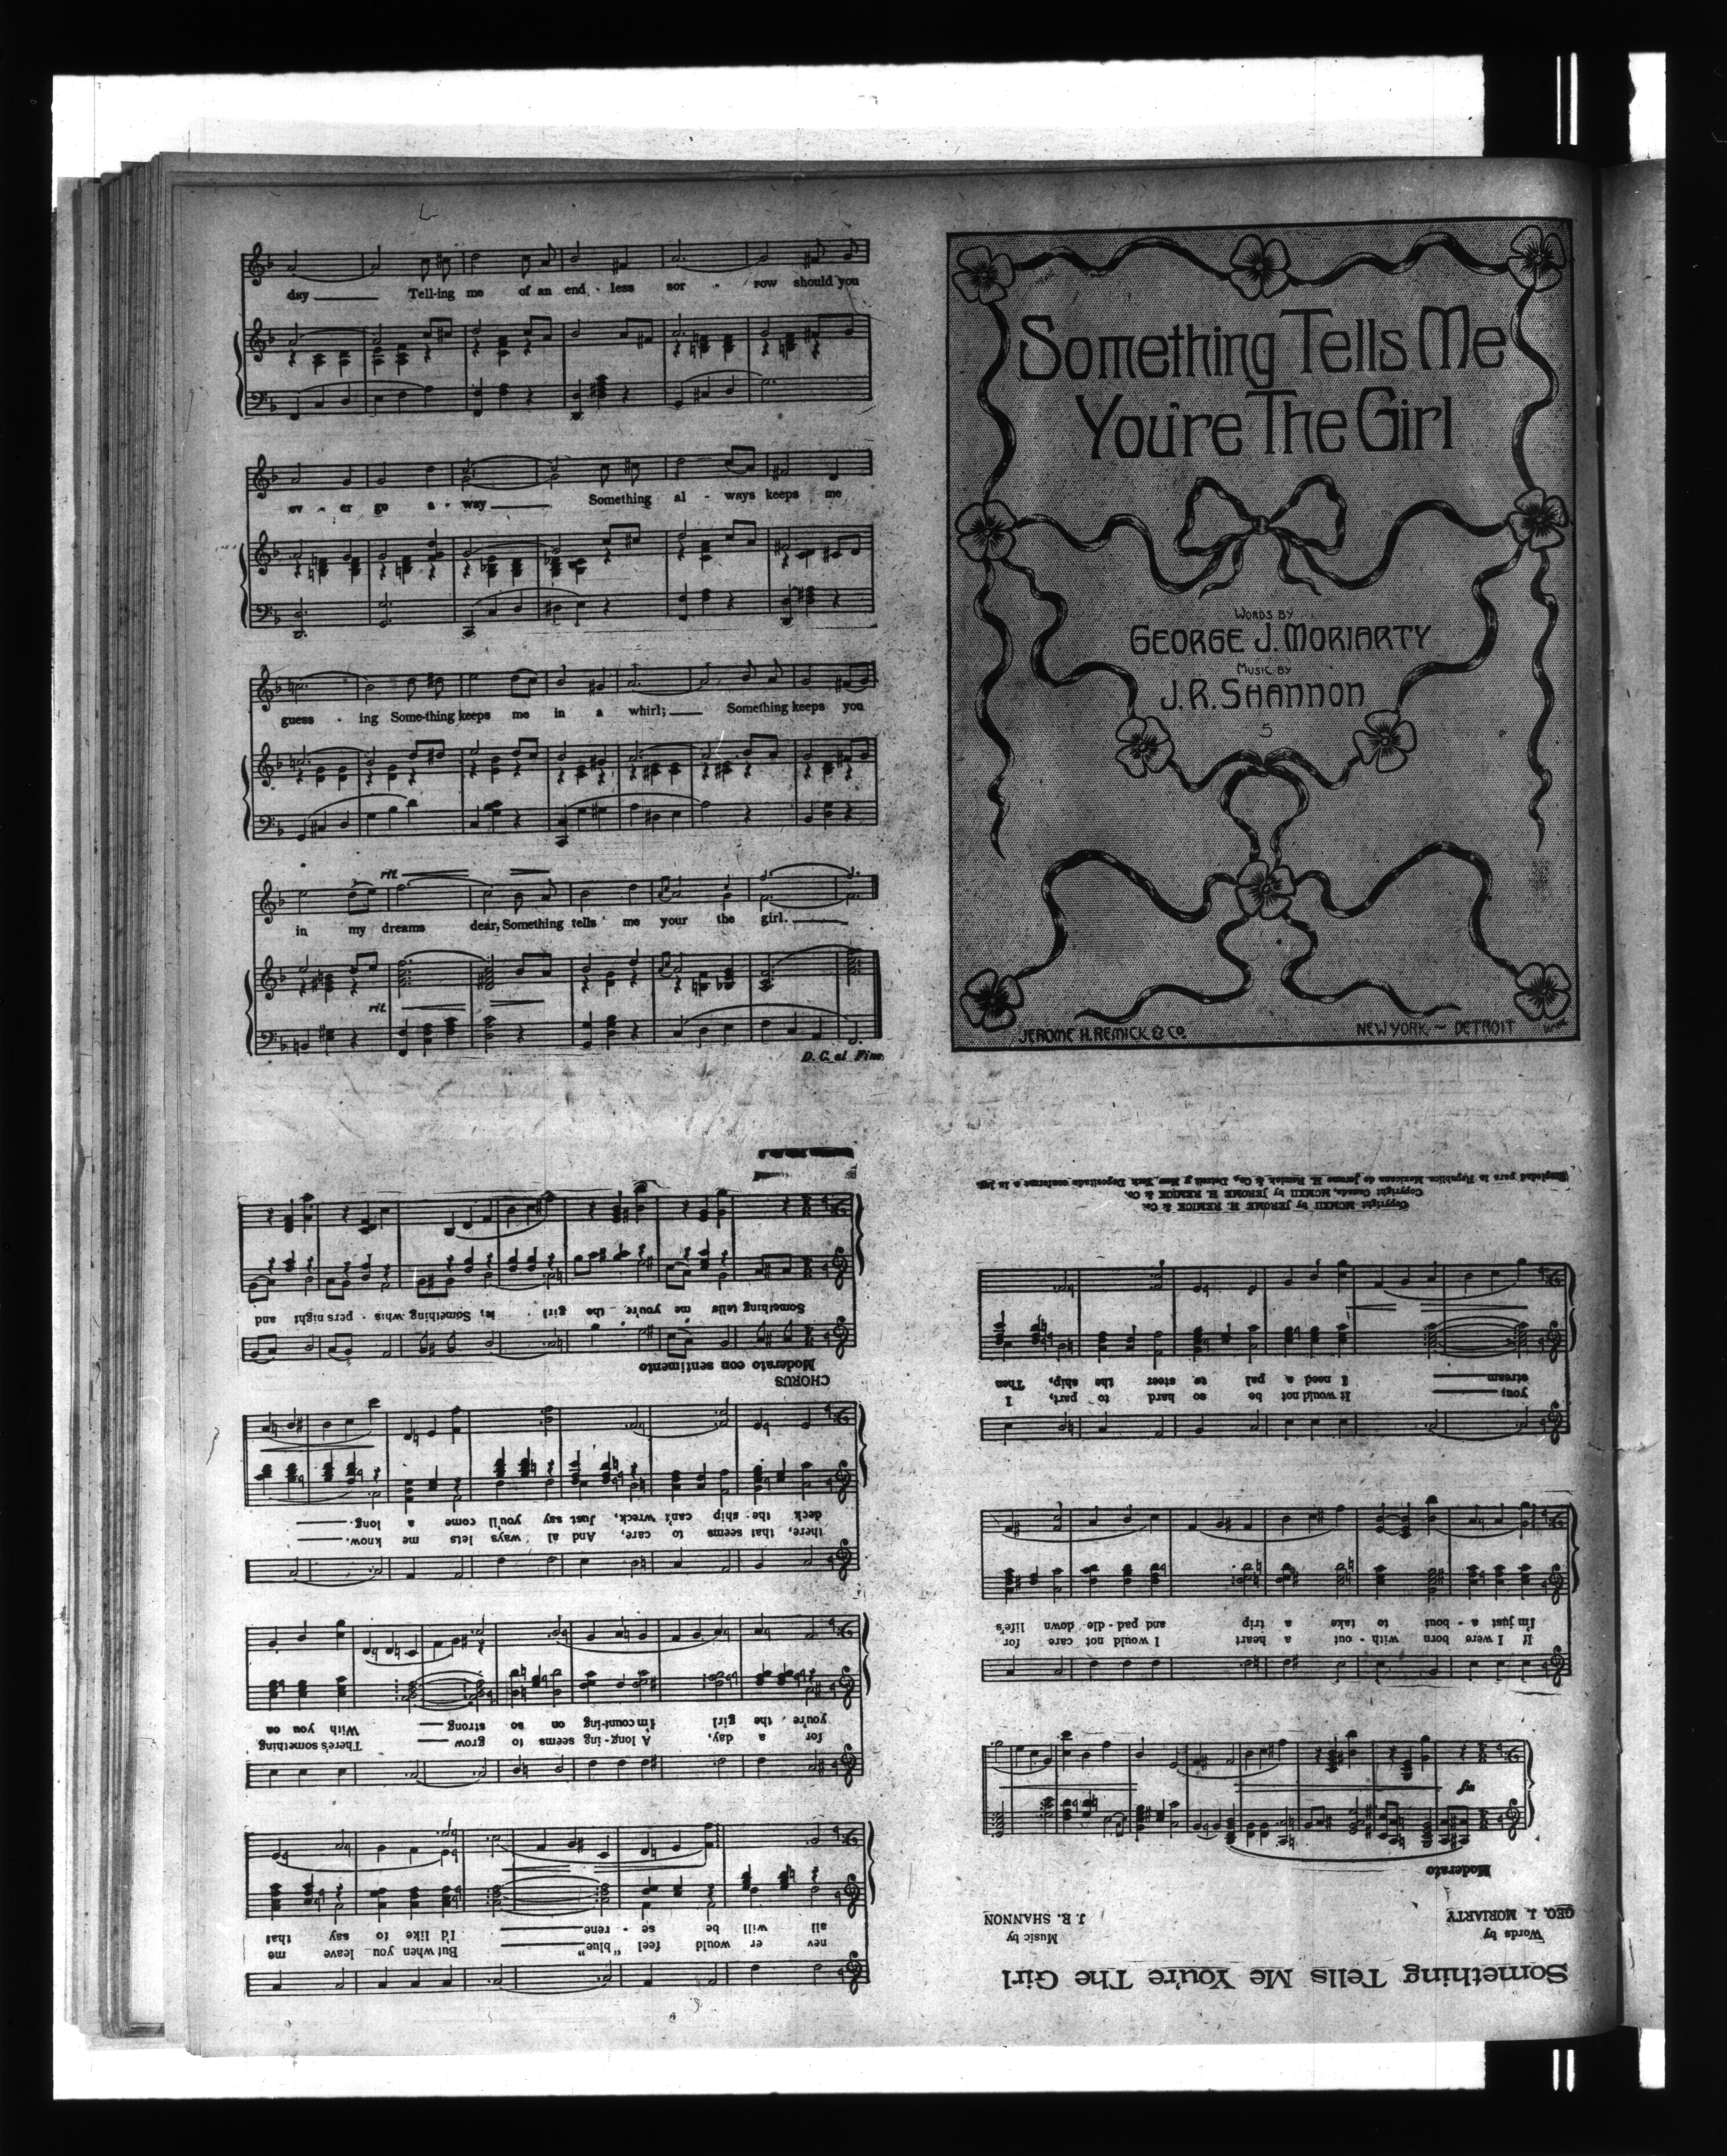 Something Tells Me
You're The Girl
WORDS BY
GEORGE J. MORIARTY
MUSIC BY
J.R. SHANNON
5
JEROME H. REMICK & CO. NEW YORK ~ DETROIT
Something Tells Me You're The Girl
Words by
GEO. J. MORIARTY
Music by
J. R. SHANNON
Moderato
mf
If I were born with - out a heart I would not care for
I'm just a - bout to take a trip and pad - dle down life's
you; It would not be so hard to part, I
stream I need a pal to steer the ship, Then
Copyright MCMXII by JEROME H. REMICK & Co.
Copyright Canada, MCMXII by JEROME H. REMICK & Co.
Propiedad para la Republica Mexicana de Jerome H. Remick & Co., Detroit y New York. Depositada conforme a la ley.
nev er would feel "blue" But when you leave me
all will be se - rene I'd like to say that
for a day, A long - ing seems to grow There's something
you're the girl I'm count-ing on so strong With you on
there, that seems to care, And al ways lets me know.
deck the ship can't wreck, Just say you'll come a long.
CHORUS
Moderato con sentimento
Something tells me you're the girl Something whis - pers night and
day Tell-ing me of an end - less sor - row should you
ev - er go a - way Something al - ways keeps me
guess - ing Some-thing keeps me in a whirl; Something keeps you
rit.
in my dreams dear, Something tells me your the girl.
rit.
D. C. al Fine